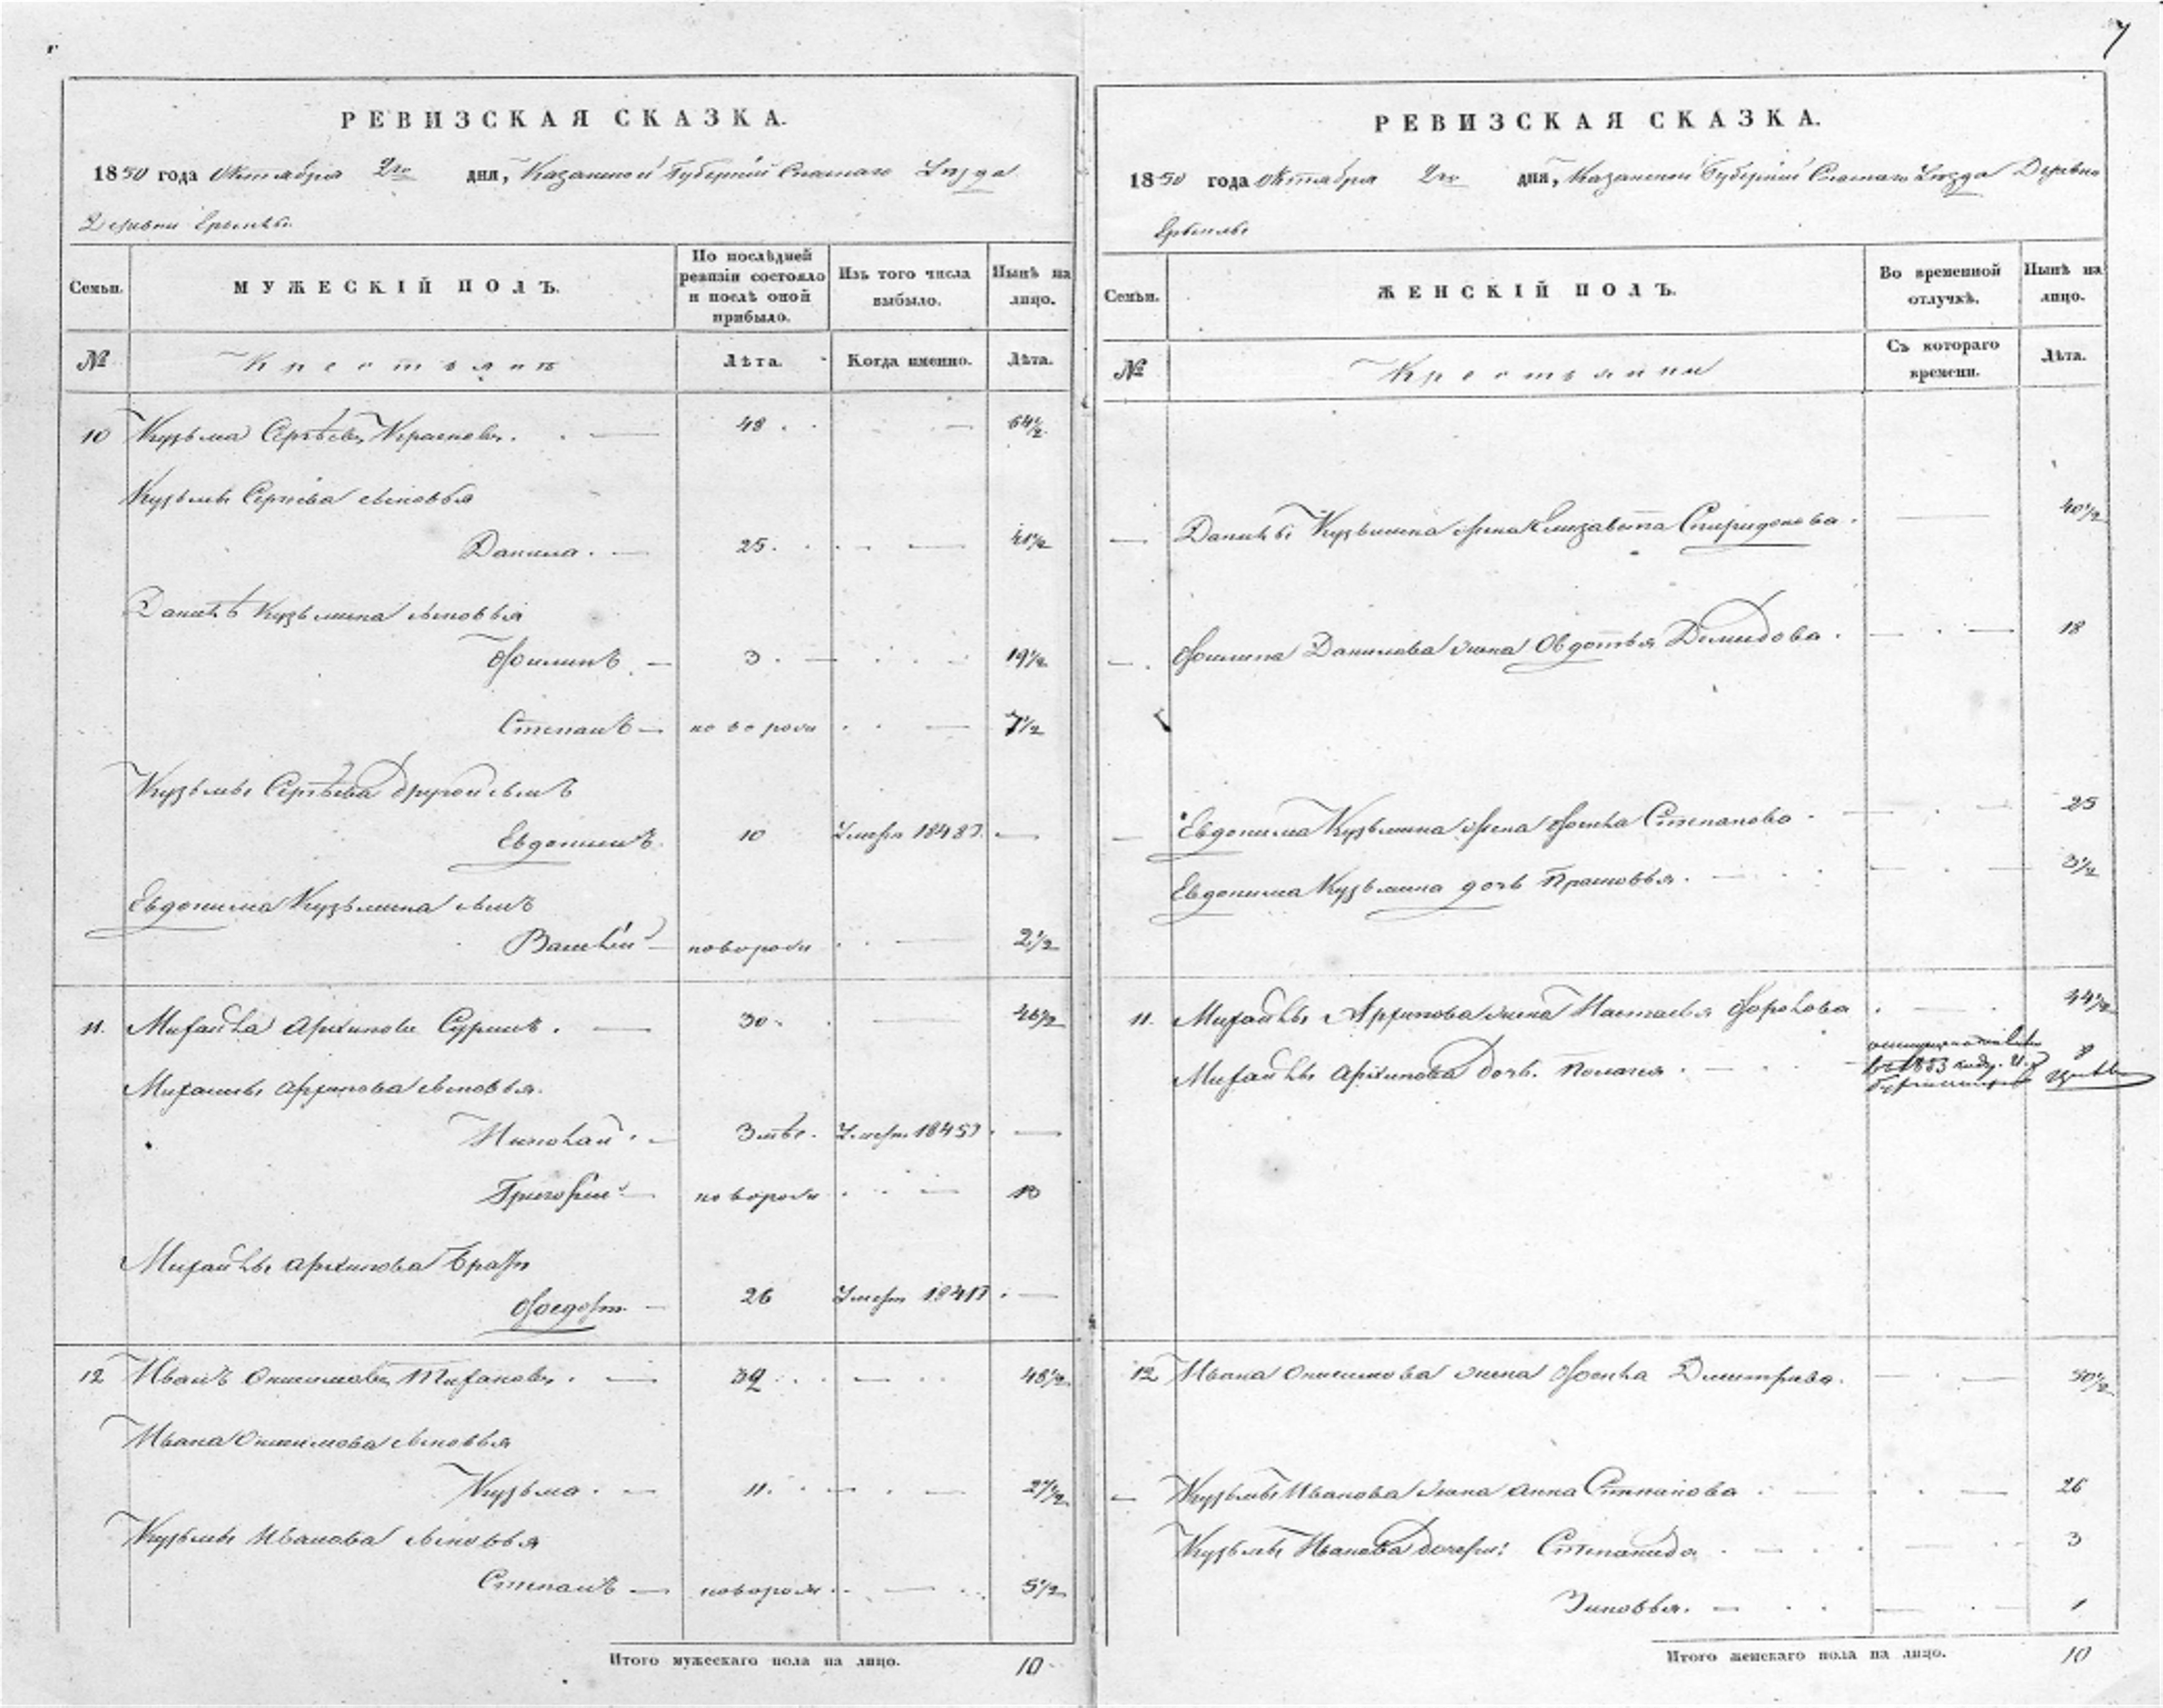 7
РЕВИЗСКАЯ СКАЗКА.
1850 года Октября 2го дня, Казанской Губернии Спаскаго Уезда
Деревни
Семьи.
МУЖЕСКІЙ ПОЛЪ.
По послѣдней ревизіи состояло и послѣ оной прибыло.
Изъ того числа выбыло.
Нынѣ на лицо.
№
Крестьянъ
Лѣта.
Когда именно.
Лѣта.
10 Кузьма Сергѣевъ 48 64½
Кузьмы Сергѣева сыновья
Данила. 25. 41½
Данилы Кузьмина сыновья
Филипъ 3. 19½
Степанъ новорож 7½
Кузьмы Сергѣева другой сынъ
Евдокимъ 10 Умеръ 1848
Евдокима Кузьмина сынъ
Василій новорож 2½
11. Михайла Архиповъ 30 46½
Михайлы Архипова сыновья.
Николай 3 Умеръ 1845
Григорій новорож 13
Михайлы Архипова братъ
Федоръ 26 Умеръ 1841
12 Иванъ Онисимовъ 32 48½
Ивана Онисимова сыновья
Кузьма. 11. 27½
Кузьмы Иванова сыновья
Степанъ новорож 5½
Итого мужескаго пола на лицо. 10
РЕВИЗСКАЯ СКАЗКА.
1850 года Октября 2го дня, Казанской Губернии Спасскаго Уезда Деревни
Семьи.
ЖЕНСКІЙ ПОЛЪ.
Во временной отлучкѣ.
Нынѣ на лицо.
№
Крестьянки
Съ котораго времени.
Лѣта.
Данилы Кузьмина жена Елизавета Спиридонова. 40½
Филипа Данилова жена Овдотья Демидова. 18
Евдокима Кузьмина жена Фекла Степанова 25
Евдокима Кузьмина дочь Прасковья. 3½
11. Михайлы Архипова жена Настасья Фролова 44½
Михайлы Архипова дочь Пелагея 8
12 Ивана Онисимова жена Фекла Дмитрева. 50½
Кузьмы Иванова жена Анна Степанова 26
Кузьмы Иванова дочери: Степанида 3
Зиновья. 1
Итого женскаго пола на лицо. 10